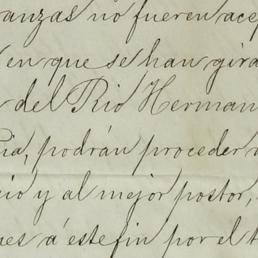 ranzas no fueren acep
en que se han gira
del Rio Herman
ia, podrán proceder
cio y al mejor postor,
es á este fin por el t